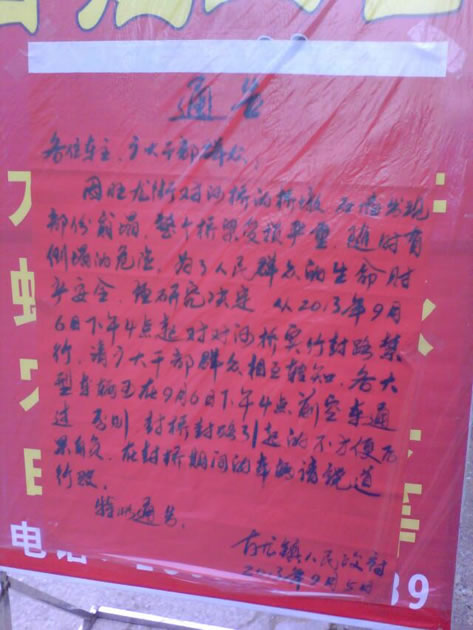 通告
各位车主、广大干部群众：
因旺龙街对河桥的桥墩、石
部份崩塌，整个桥梁受损严重，随时有
倒塌的危险，为了人民群众的生命财
产安全，经研究决定，从2013年9月
6日下午4点起对对河桥实行封路禁
行，请广大干部群众相互转知，各大
型车辆在9月6日下午4点前空车通
过，否则，封桥封路引起的不方便后
果自负，在封桥期间的车辆请绕道
行驶。
特此通告。
镇人民政府
2013年9月5日
电话
89